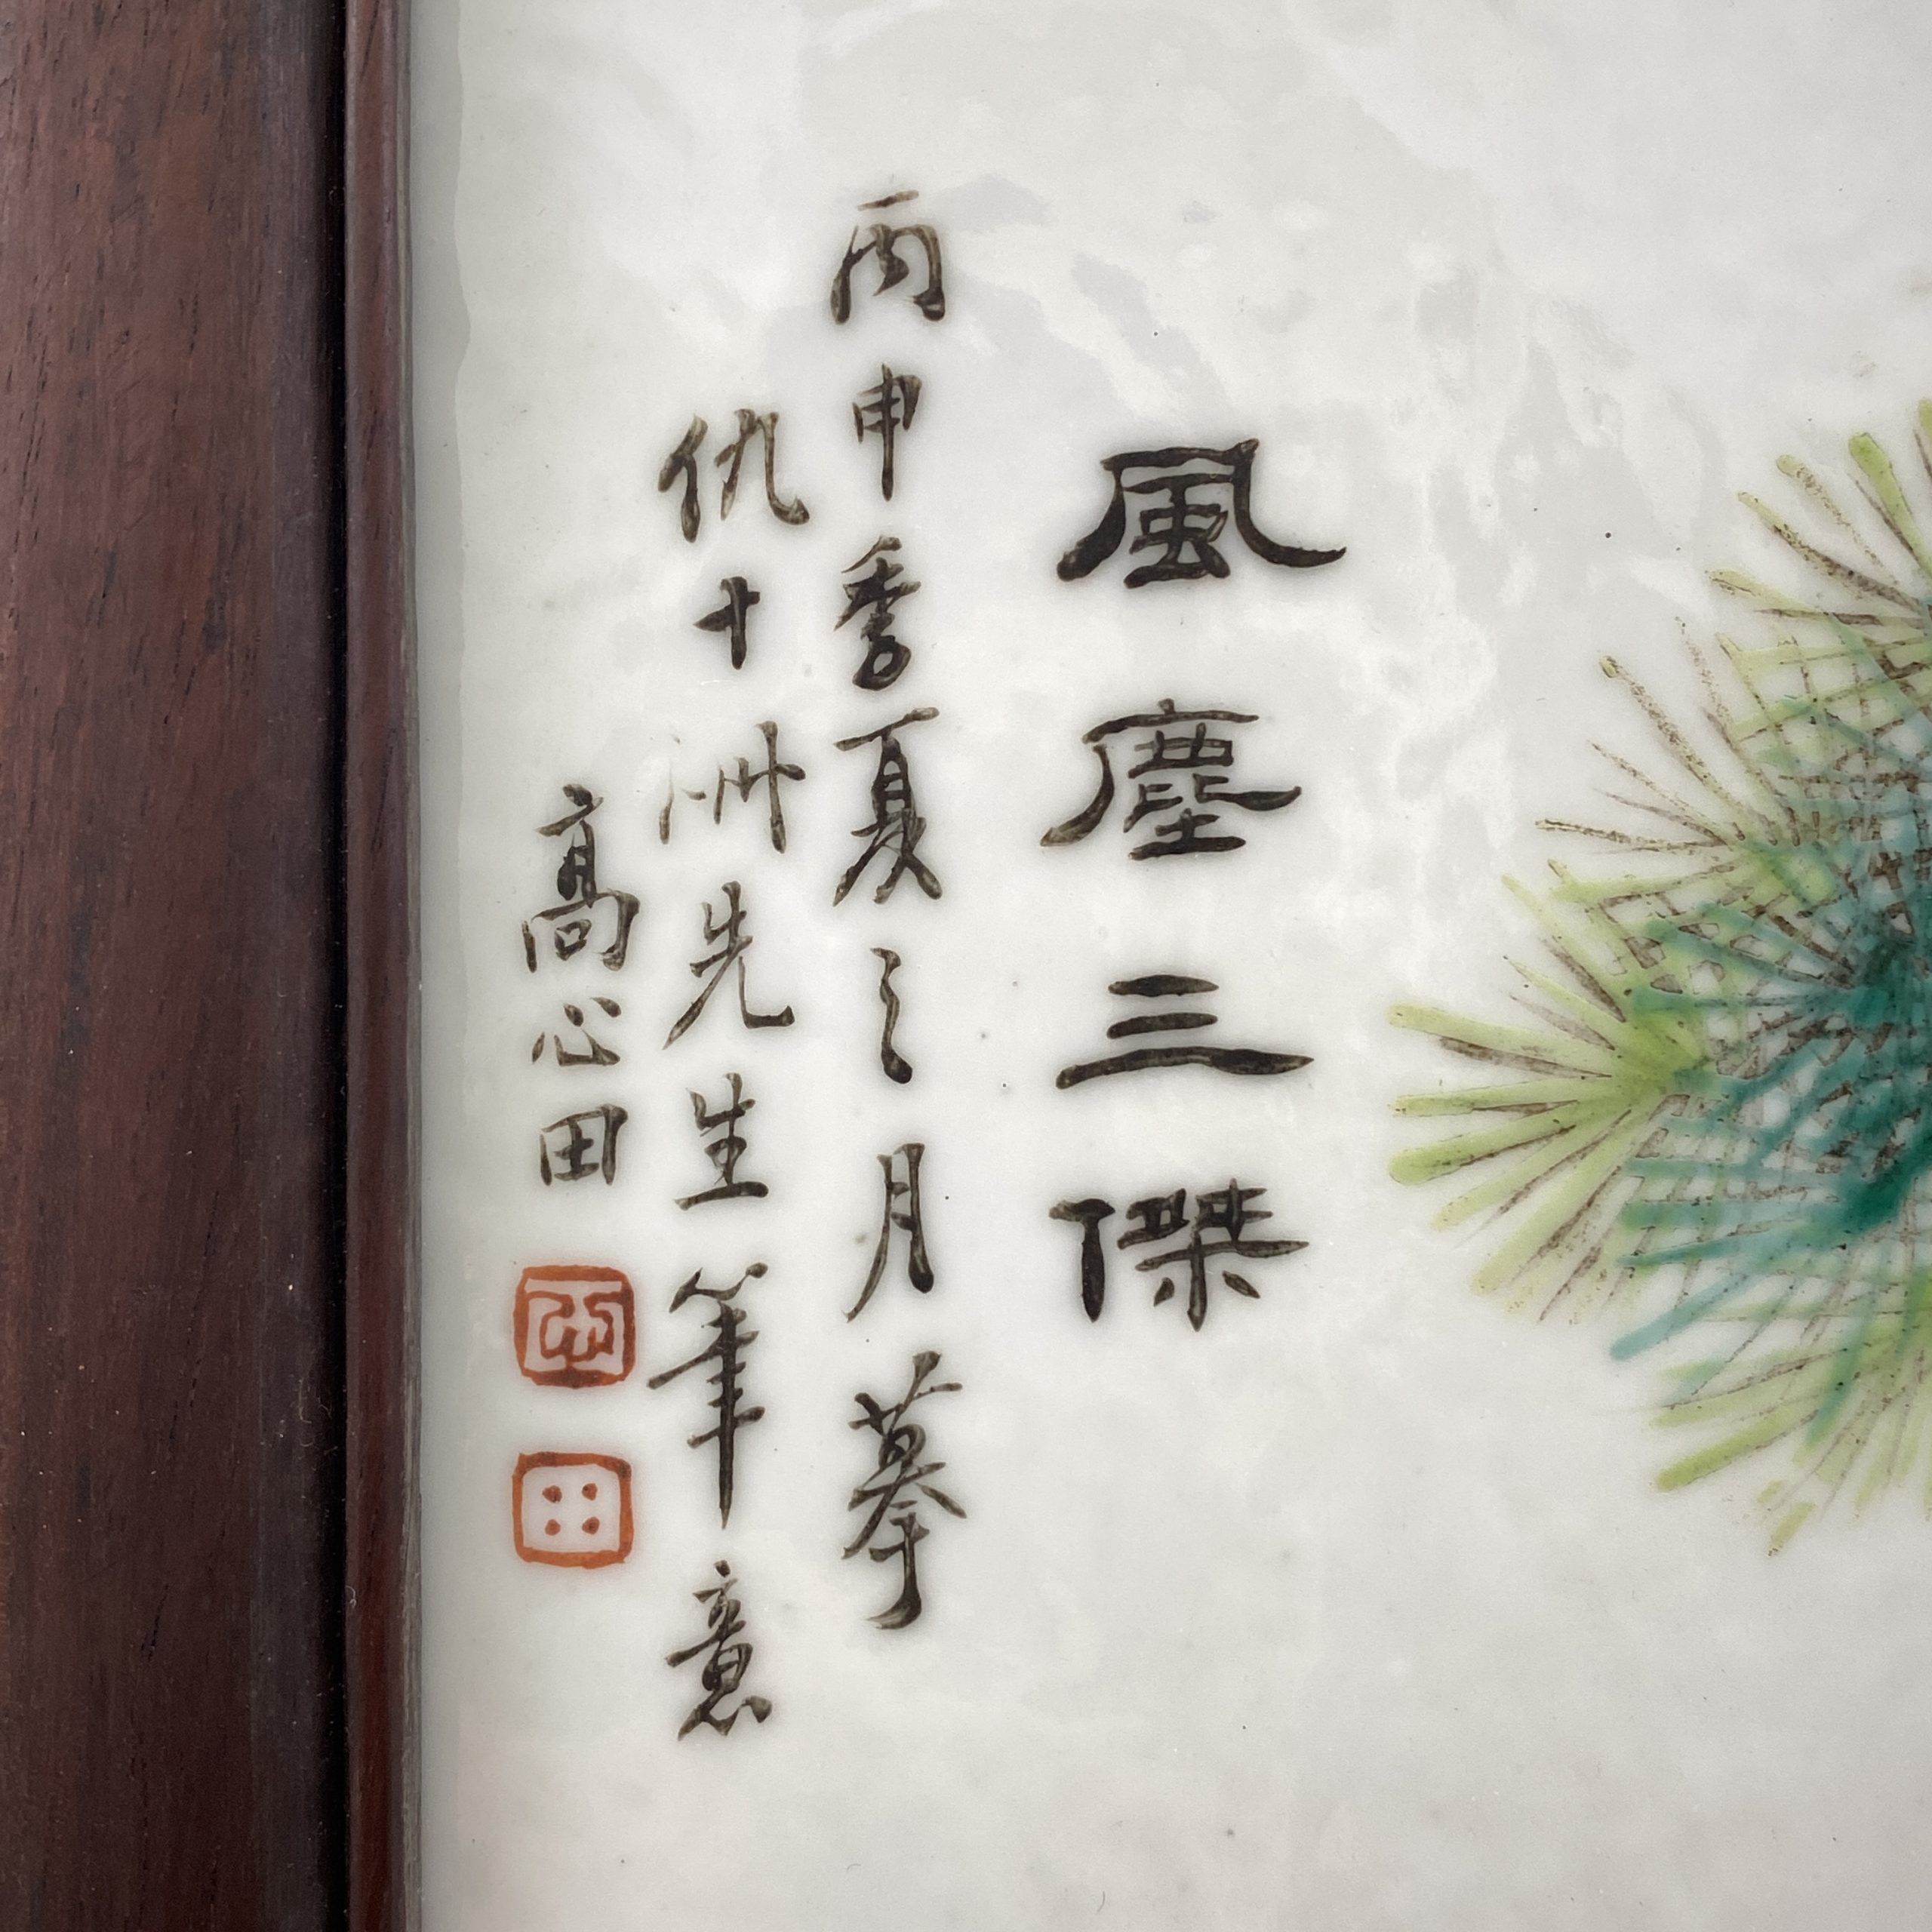 風塵三傑
丙申季夏之月摹
仇十洲先生筆意
高心田